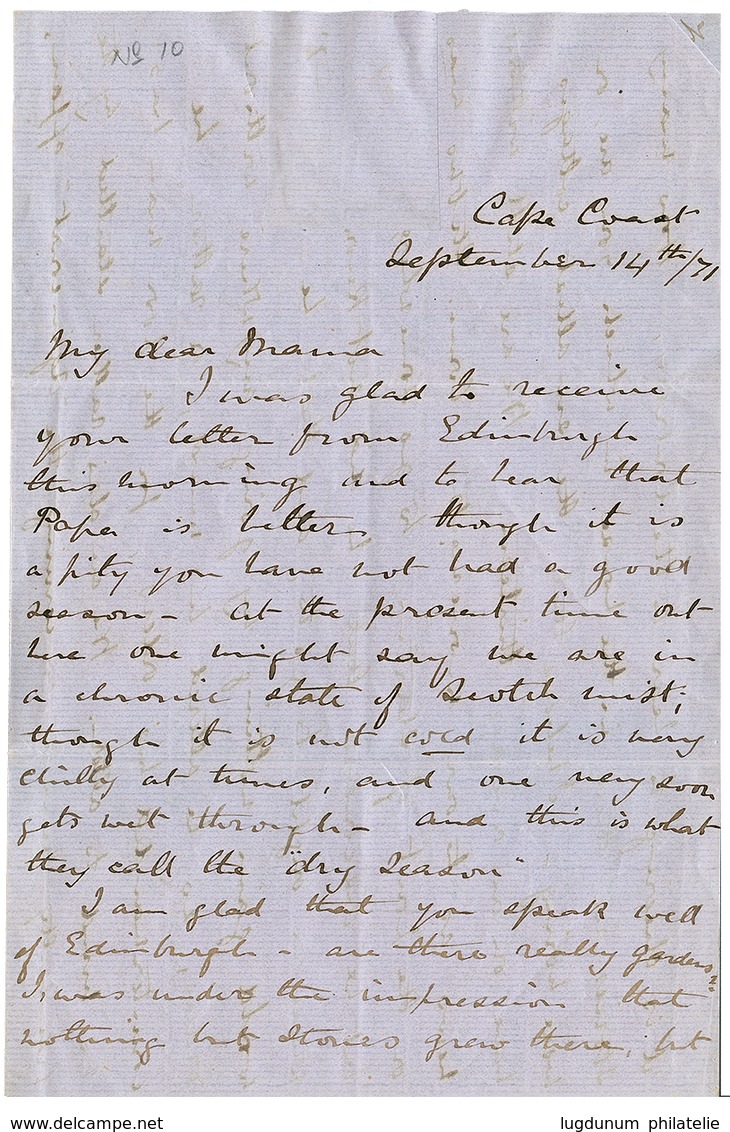 No 10
Cape Coast
September 14th/71
My dear Mama
I was glad to receive
your letter from Edinburgh
this morning and to hear that
Papa is better, though it is
a pity you have not had a good
season - at the present time out
here one might say we are in
a chronic state of Scotch mist;
though it is not cold it is very
chilly at times, and one very soon
gets wet through - and this is what
they call the "dry season"
I am glad that you speak well
of Edinburgh - are there really gardens?
I was under the impression that
nothing but stones grew there, but
www.delcampe.net
lugdunum philatelie